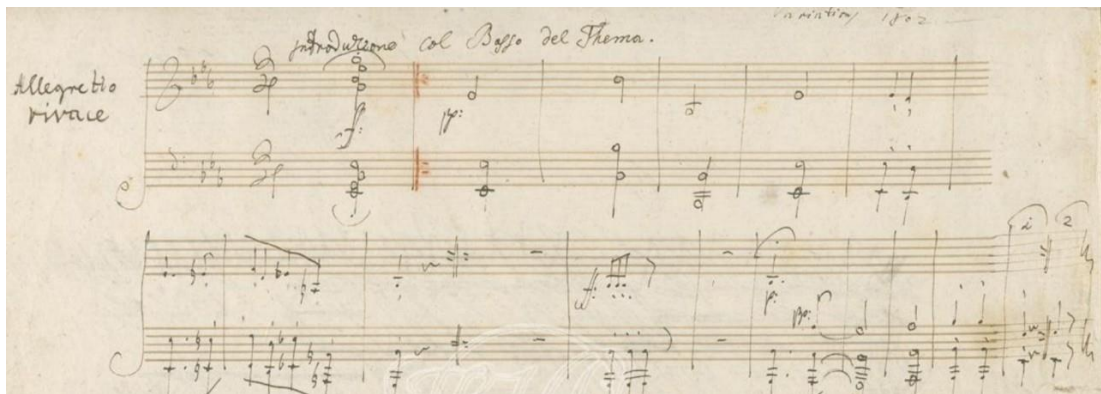 Variations 1802
Introduzione col Basso del Thema.
Allegretto
vivace
f:
pp:
f:
p:
pp:
1 2